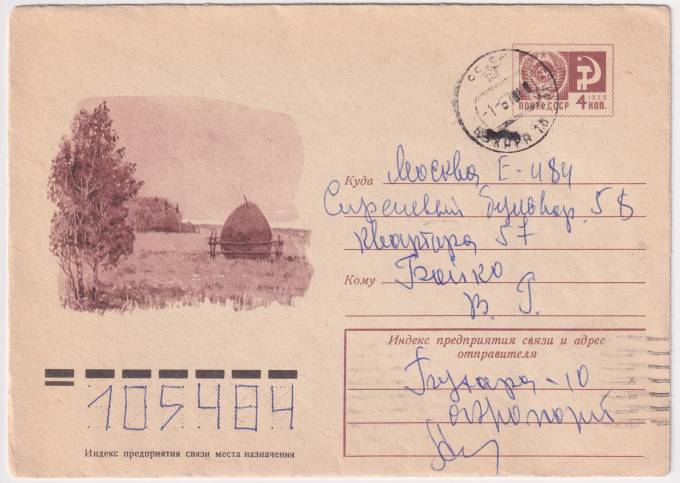 СССР
ПОЧТА СССР 1966 4 КОП.
БУХАРА 10
Куда Москва Е-484
Сиреневый бульвар 5Б
квартира 57
Кому Бойко
В. Г.
Индекс предприятия связи и адрес
отправителя
Бухара-10
аэропорт
105484
Индекс предприятия связи места назначения